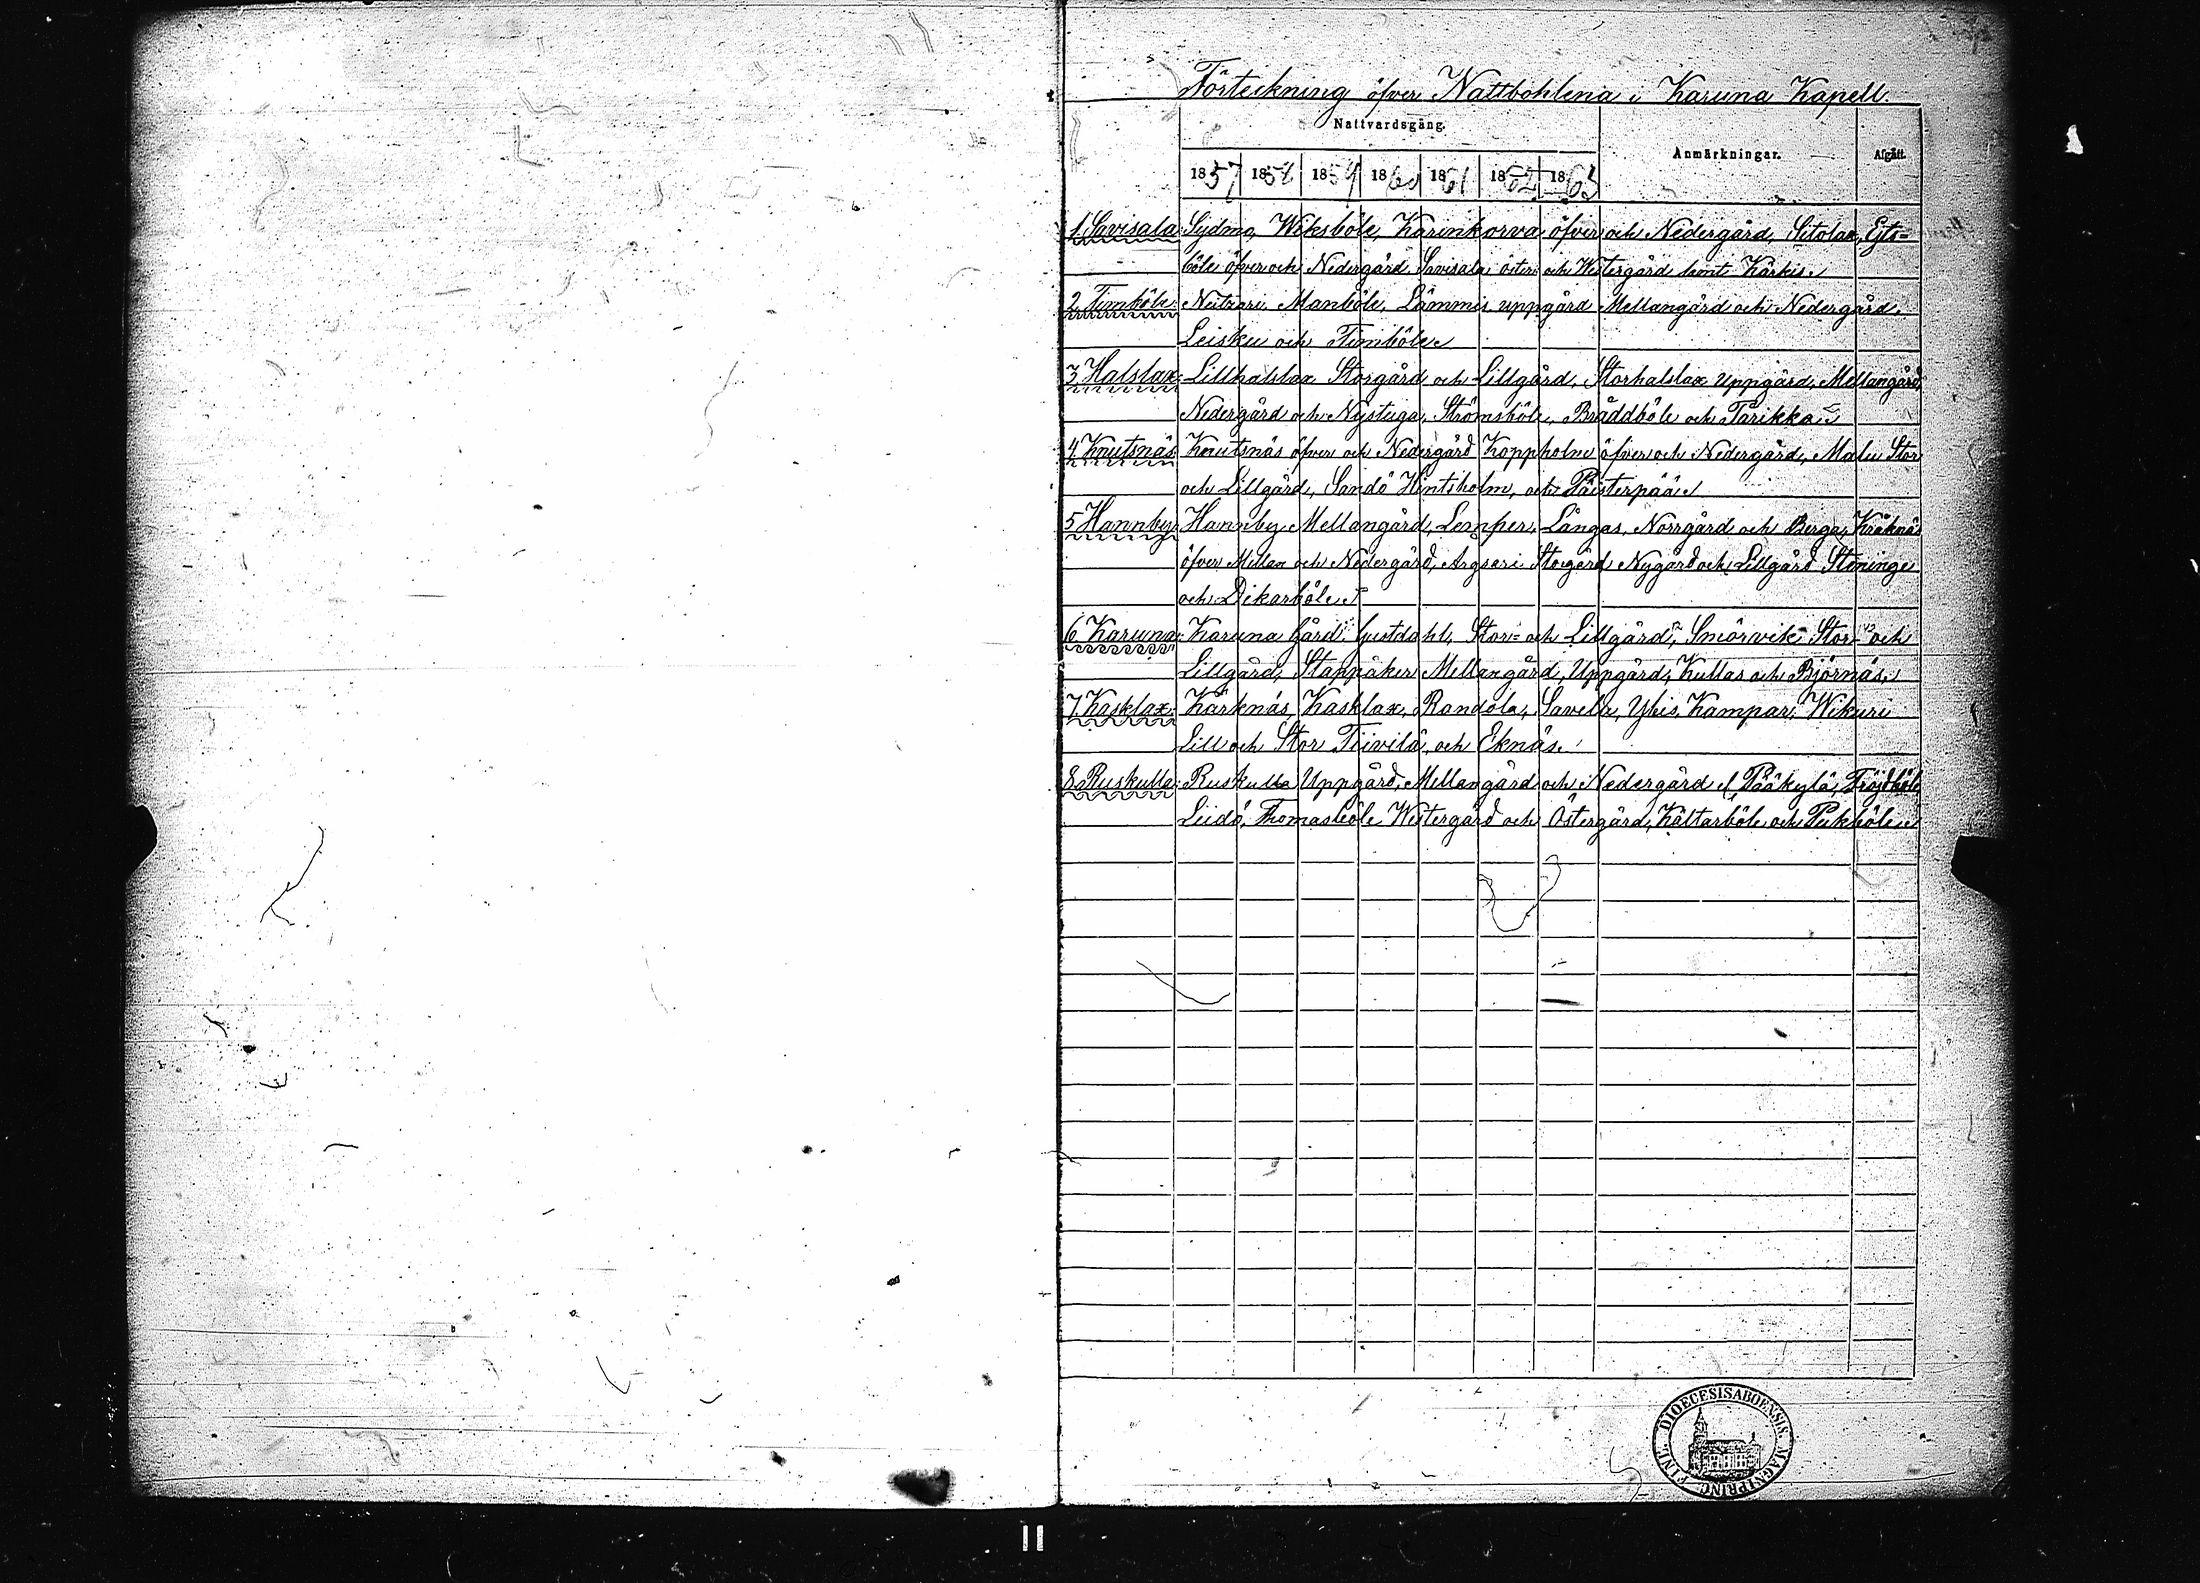 Förteckning öfver Nattbohlena i Karuna Kapell.
Nattvardsgång. Anmärkningar. Afgått.
1857 1858 1859 1860 1861 1862 1863
1 Savisala Sydmo, Wiksböle, Karinkorva öfver och Nedergård, Setolax, Ejts=
böle öfver och Nedergård Savisala öster och Westergård samt Kärkis.
2 Timböle: Neitzari, Manböle, Lämmis uppgård Mellangård och Nedergård.
Leisku och Timböle.
3 Halslax: Lillhalslax Storgård och Lillgård, Storhalslax Uppgård, Mellangård,
Nedergård och Nystuga, Strömsböle, Bräddböle och Tarikka.
4 Knutsnäs Knutsnäs öfver och Nedergård Koppholm öfver och Nedergård, Malu Stor
och Lillgård, Sandö Hintsholm, och Päisterpää.
5 Hannby: Hannby Mellangård, Lemper, Långas, Norrgård och Berga, Kräknäs
öfver Mellan och Nedergård, Argsari Storgård Nygård och Lillgård Stoninge
och Dikarböle.
6 Karuna: Karuna Gård: Gustdahl, Stor= och Lillgård, Smörvik Stor- och
Lillgård, Stappåker Mellangård, Uppgård, Kullas och Björnäs.
7. Kasklax: Kärknäs Kasklax, Randola, Savela, Ylis, Kampar, Wikuri
Lill och Stor Tiivilä, och Eknäs.
8. Ruskulla: Ruskulla Uppgård, Mellangård och Nedergård Pääkylä, Fröjdböle
Liidö, Thomasböle Westergård och Östergård, Kättarböle och Pukböle.
DIOECESIS ABOENSIS. MAGNI PRINC. FINL.
11